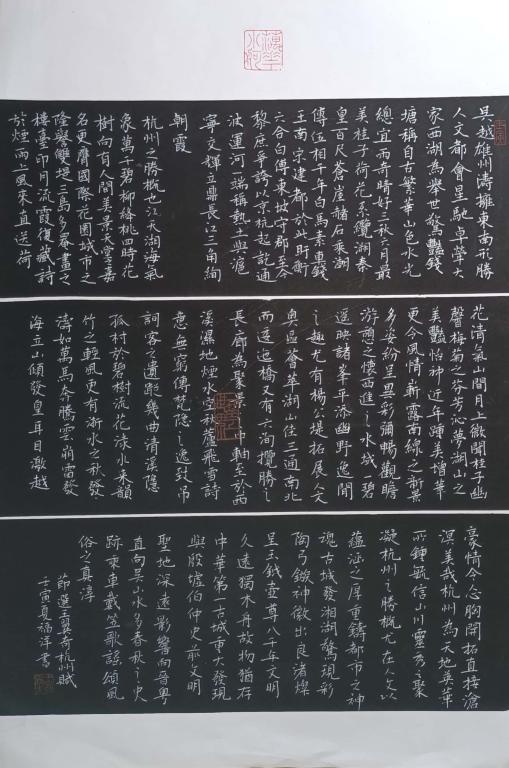 吴越雄州濤擁東南形勝
人文都會星馳卓犖大
家西湖為舉世驚豔錢
塘稱自古繁華山色水光
總宜雨奇晴好三秋六月最
美桂子荷花系纜游秦
皇百尺蒼崖赭石乘潮
傳伍相千年白馬素車錢
王南宋建都於此盱衡
六合白傅東坡守郡至今
黎庶爭誇以京杭起訖通
波運河一端稱熱土與滬
寧文輝立鼎長江三角絢
朝霞
杭州之勝概也江天湖海氣
象萬千碧柳絳桃四時花
樹向有人間美景天堂嘉
名更膺國際花園城市之
隆譽雙堤三島多奄畫之
樓臺印月流霞復藏詩
於煙雨上風來直送荷
花清氣山間月上微聞桂子幽
馨梅菊之芬芳沁夢湖山之
美豔怡神近年踵美增華
更令風情嶄露南線之新景
多姿紛呈異彩彌暢觀瞻
游憩之懷西進之水域一碧
遥映諸峯平添幽野逸閒
之趣尤有楊公堤拓展人文
奧區薈萃湖山佳三通南北
而逶迤橋又有六洵攬勝之
長廊為聚景之中軸至於西
溪濕地煙水空秋蘆飛雪詩
意無窮傳梵隱之逸致吊
詞客之遺蹤幾曲清溪隱
孤村於碧樹流花淥水來韻
竹之輕風更有浙水之秋發
濤如萬馬奔騰雲崩雷發
海立山傾發皇耳目激越
豪情今念胸開拓直接滄
溟美哉杭州為天地英華
所鍾毓信山川靈秀之聚
凝杭州之勝概尤在人文以
蘊涵之厚重鑄都市之神
魂古城發湘湖驚現彩
陶弓鏃神徽出良渚燦
呈玉鉞壺尊八千年文明
久遠獨木舟故物猶存
中華第一古城重大發現
與殷墟伯仲史前文明
聖地深遠影響向音粤
直向吴山水多春秋之史
跡來車載笠歌謡頌風
俗之真淳
節選王翼奇杭州賦
壬寅夏福洋書